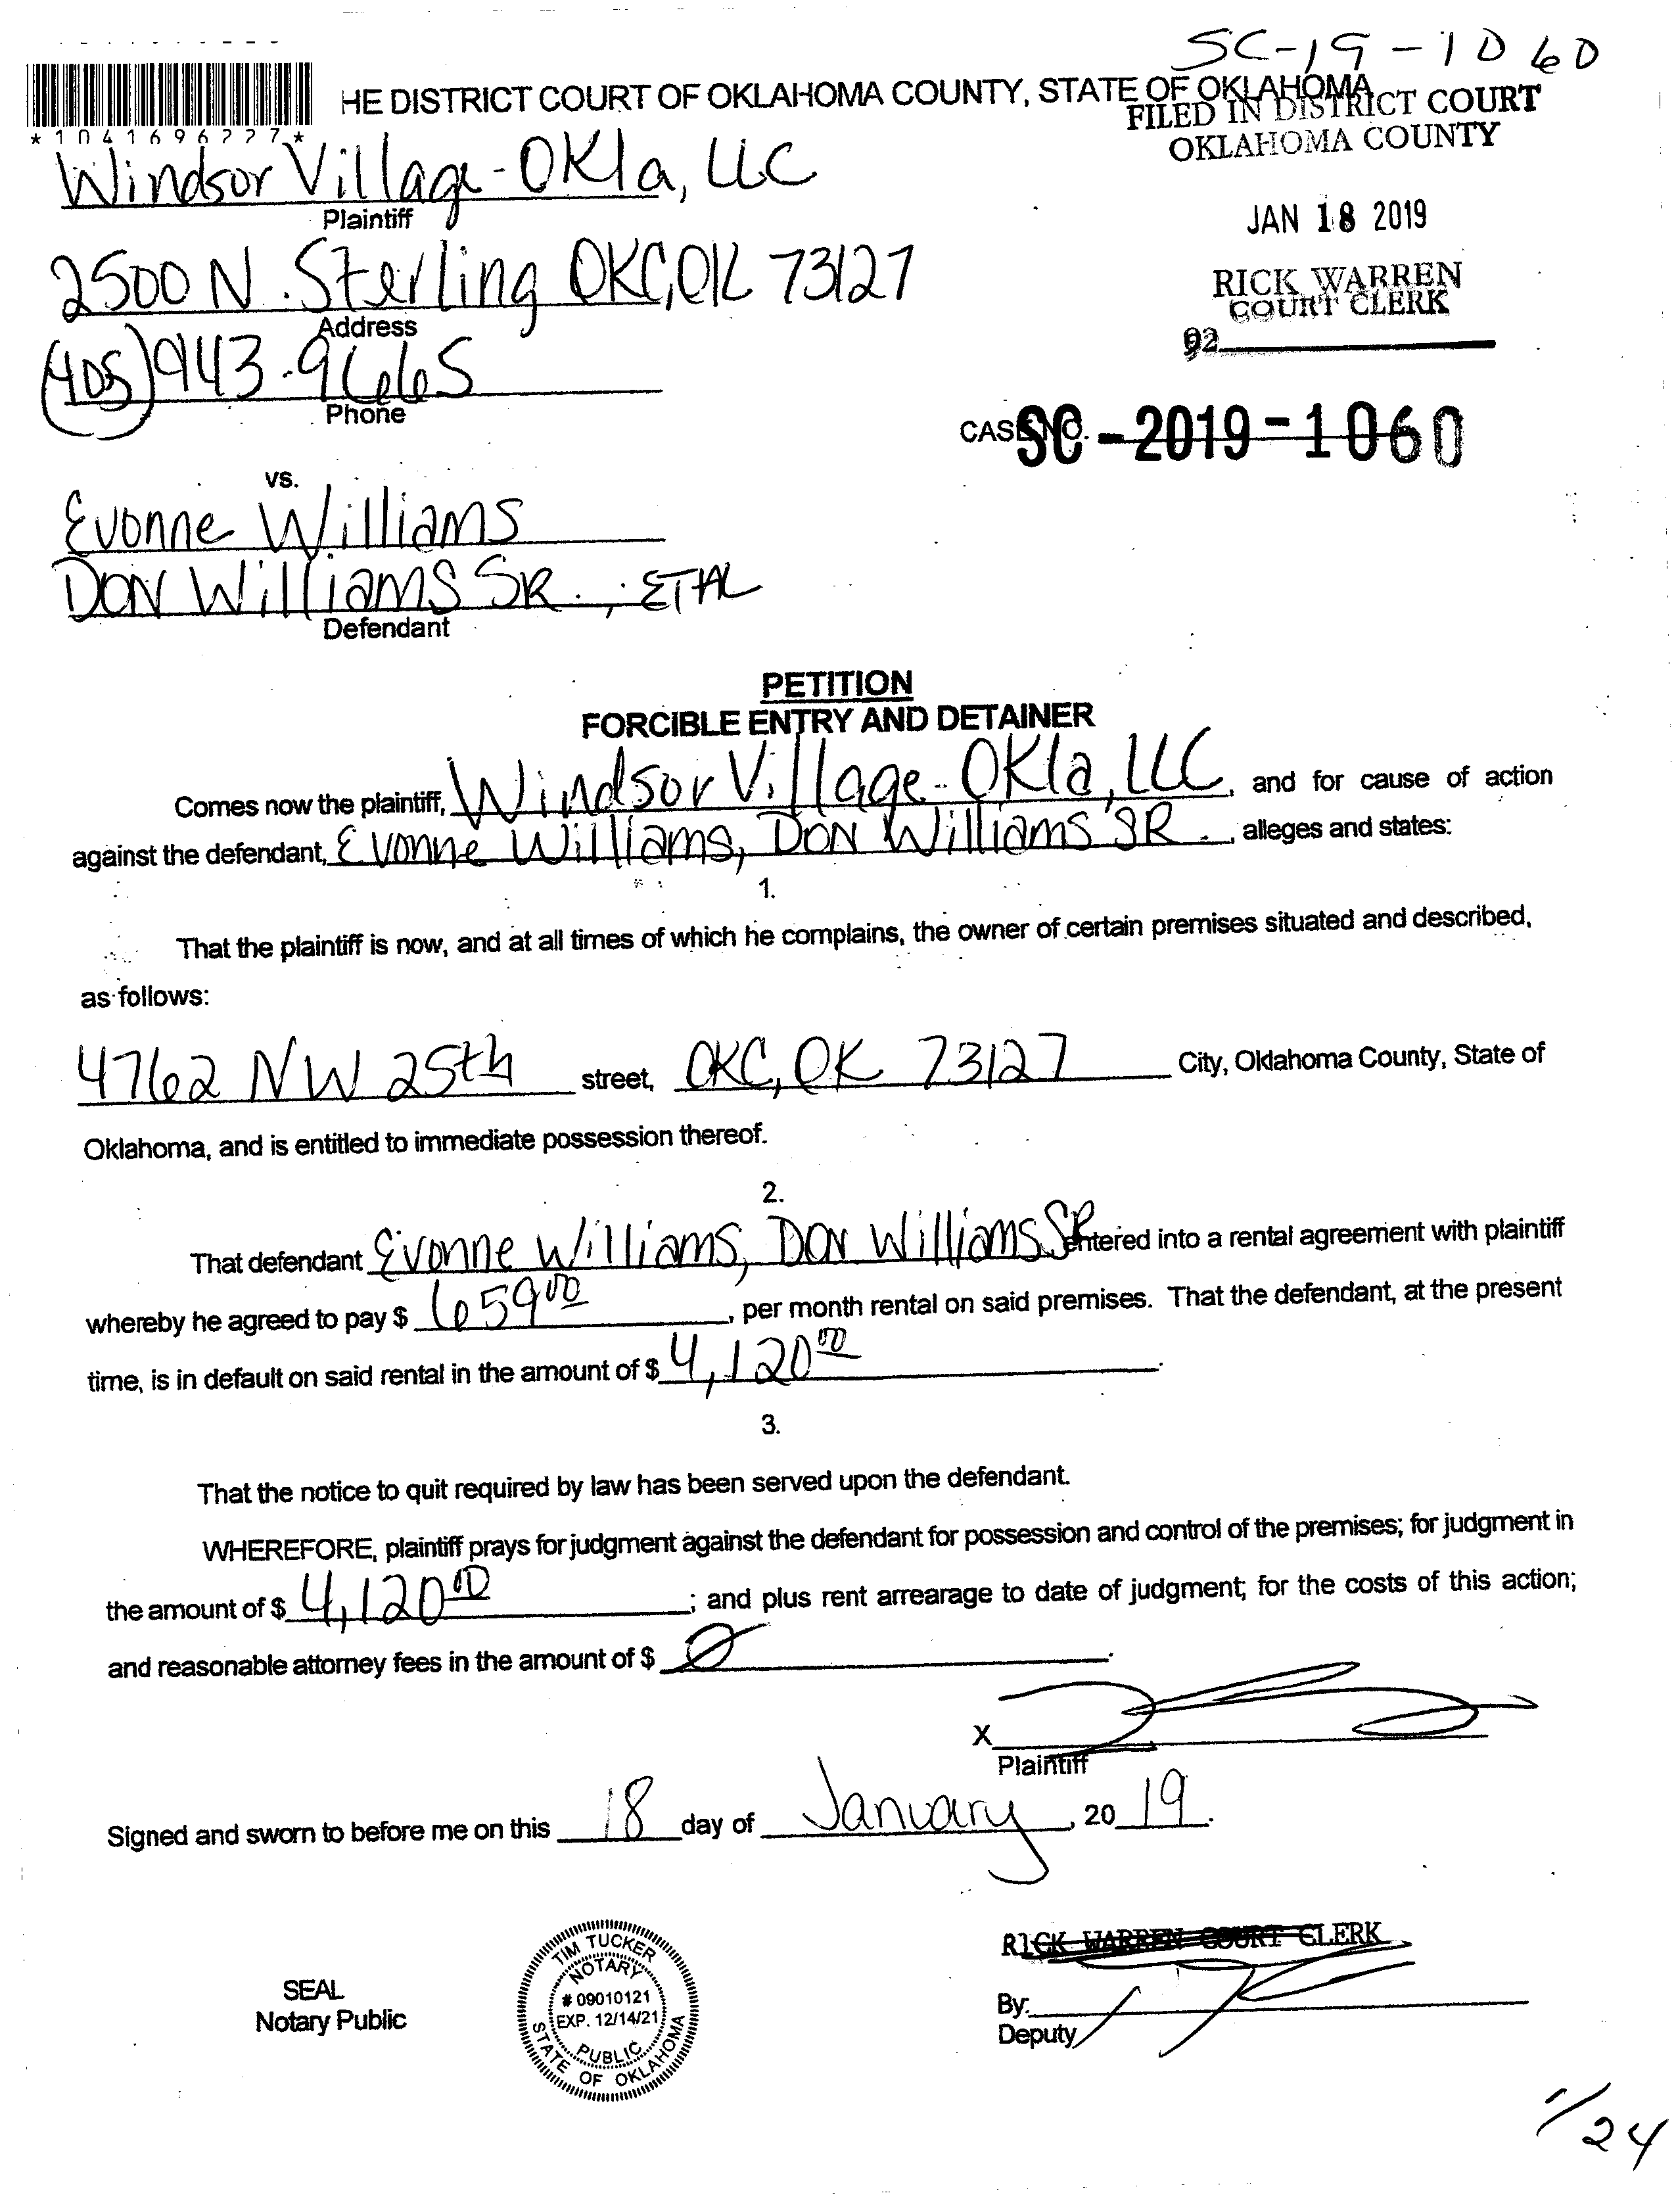 SC-19-1060
HE DISTRICT COURT OF OKLAHOMA COUNTY, STATE OF OKLAHOMA
FILED IN DISTRICT COURT
OKLAHOMA COUNTY
*1041696227*
Windsor Village-Okla, LLC
Plaintiff
JAN 18 2019
2500 N. Sterling OKC, OK 73127
Address
RICK WARREN
COURT CLERK
92
(405) 943-9665
Phone
CASE NO.
SC-2019-1060
vs.
Evonne Williams
DON Williams SR., ; ETAL
Defendant
PETITION
FORCIBLE ENTRY AND DETAINER
Comes now the plaintiff, Windsor Village-Okla, LLC, and for cause of action
against the defendant, Evonne Williams, DON Williams SR., alleges and states:
1.
That the plaintiff is now, and at all times of which he complains, the owner of certain premises situated and described,
as follows:
4762 NW 25th street, OKC, OK 73127 City, Oklahoma County, State of
Oklahoma, and is entitled to immediate possession thereof.
2.
That defendant Evonne Williams, DON Williams SR entered into a rental agreement with plaintiff
whereby he agreed to pay $ 659 00, per month rental on said premises. That the defendant, at the present
time, is in default on said rental in the amount of $ 4,120 00.
3.
That the notice to quit required by law has been served upon the defendant.
WHEREFORE, plaintiff prays for judgment against the defendant for possession and control of the premises; for judgment in
the amount of $ 4,120 00; and plus rent arrearage to date of judgment; for the costs of this action;
and reasonable attorney fees in the amount of $ Ø.
X
Plaintiff
Signed and sworn to before me on this 18 day of January, 20 19.
RICK WARREN COURT CLERK
SEAL
Notary Public
TIM TUCKER
NOTARY
# 09010121
EXP. 12/14/21
PUBLIC
STATE OF OKLAHOMA
By:
Deputy
1/24